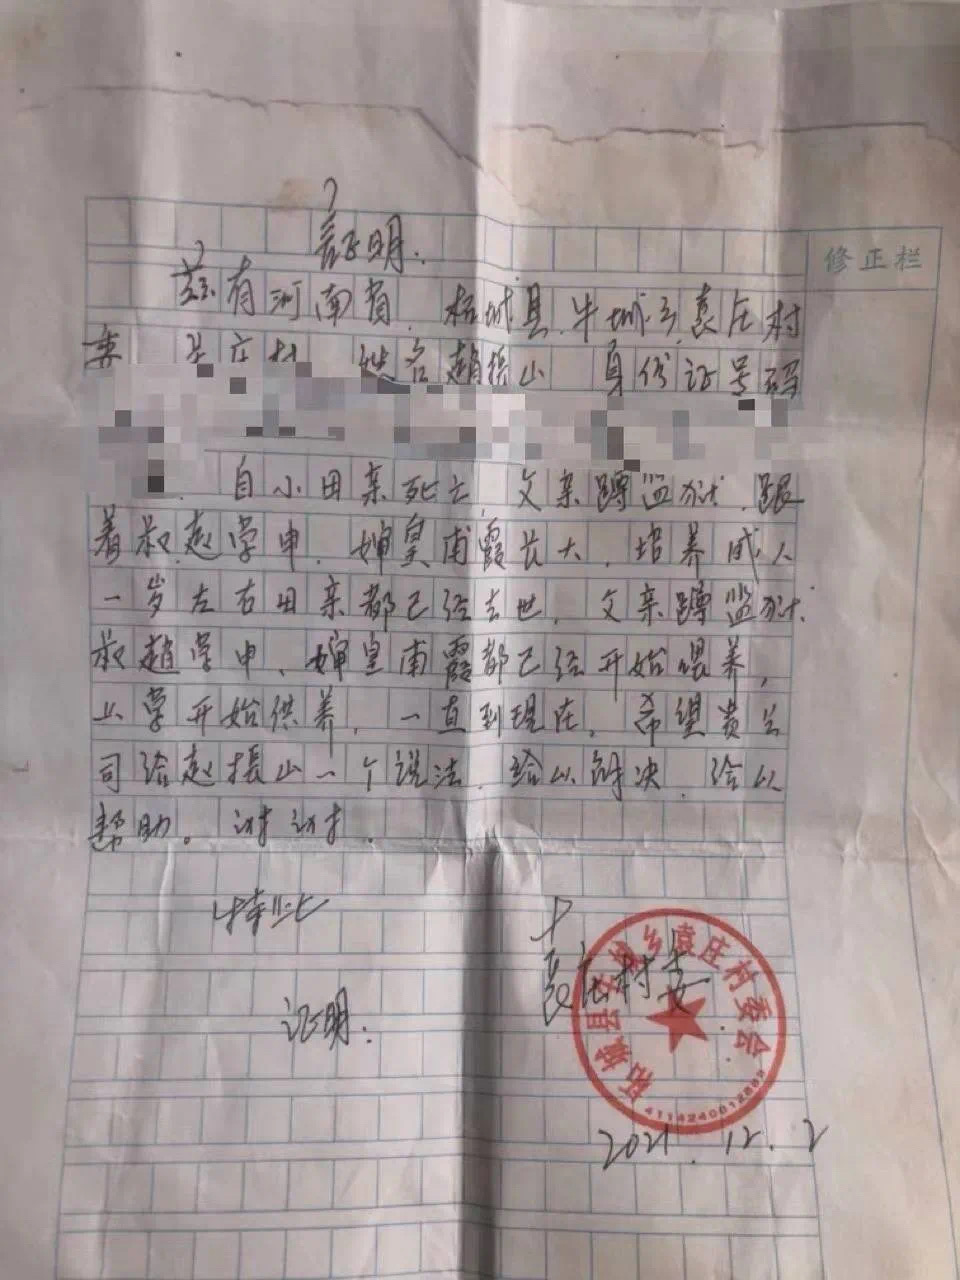 证明.
修正栏
兹有河南省.柘城县.牛城乡袁庄村
委 庄村 姓名赵振山 身份证号码
自小母亲死亡,父亲蹲监狱.跟
着叔赵学申.婶皇甫霞长大,培养成人
一岁左右母亲都已经去世,父亲蹲监狱.
叔赵学申、婶皇甫霞都已经开始喂养,
上学开始供养,一直到现在,希望贵公
司给赵振山一个说法.给以解决.给以
帮助。谢谢.
特此
袁庄村委
证明.
柘城县牛城乡袁庄村委会
4114240012889
2021.12.2